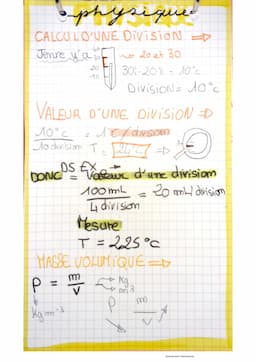 physique
CALCUL D'UNE DIVISION ⇒
Jenre y'a 20 et 30
30 - 20 = 10°C
20
10
DIVISION = 10°C
VALEUR D'UNE DIVISION ⇒
10°C / 10 division = 1°C/division
T = 24°C ⇒
DS EX
DONC = Valeur d'une division
100 mL / 4 division = 20 mL/division
Mesure
T = 22,5°C
MASSE VOLUMIQUE ⇒
ρ = m/V → kg
→ m³
kg m⁻³
ρ m
V